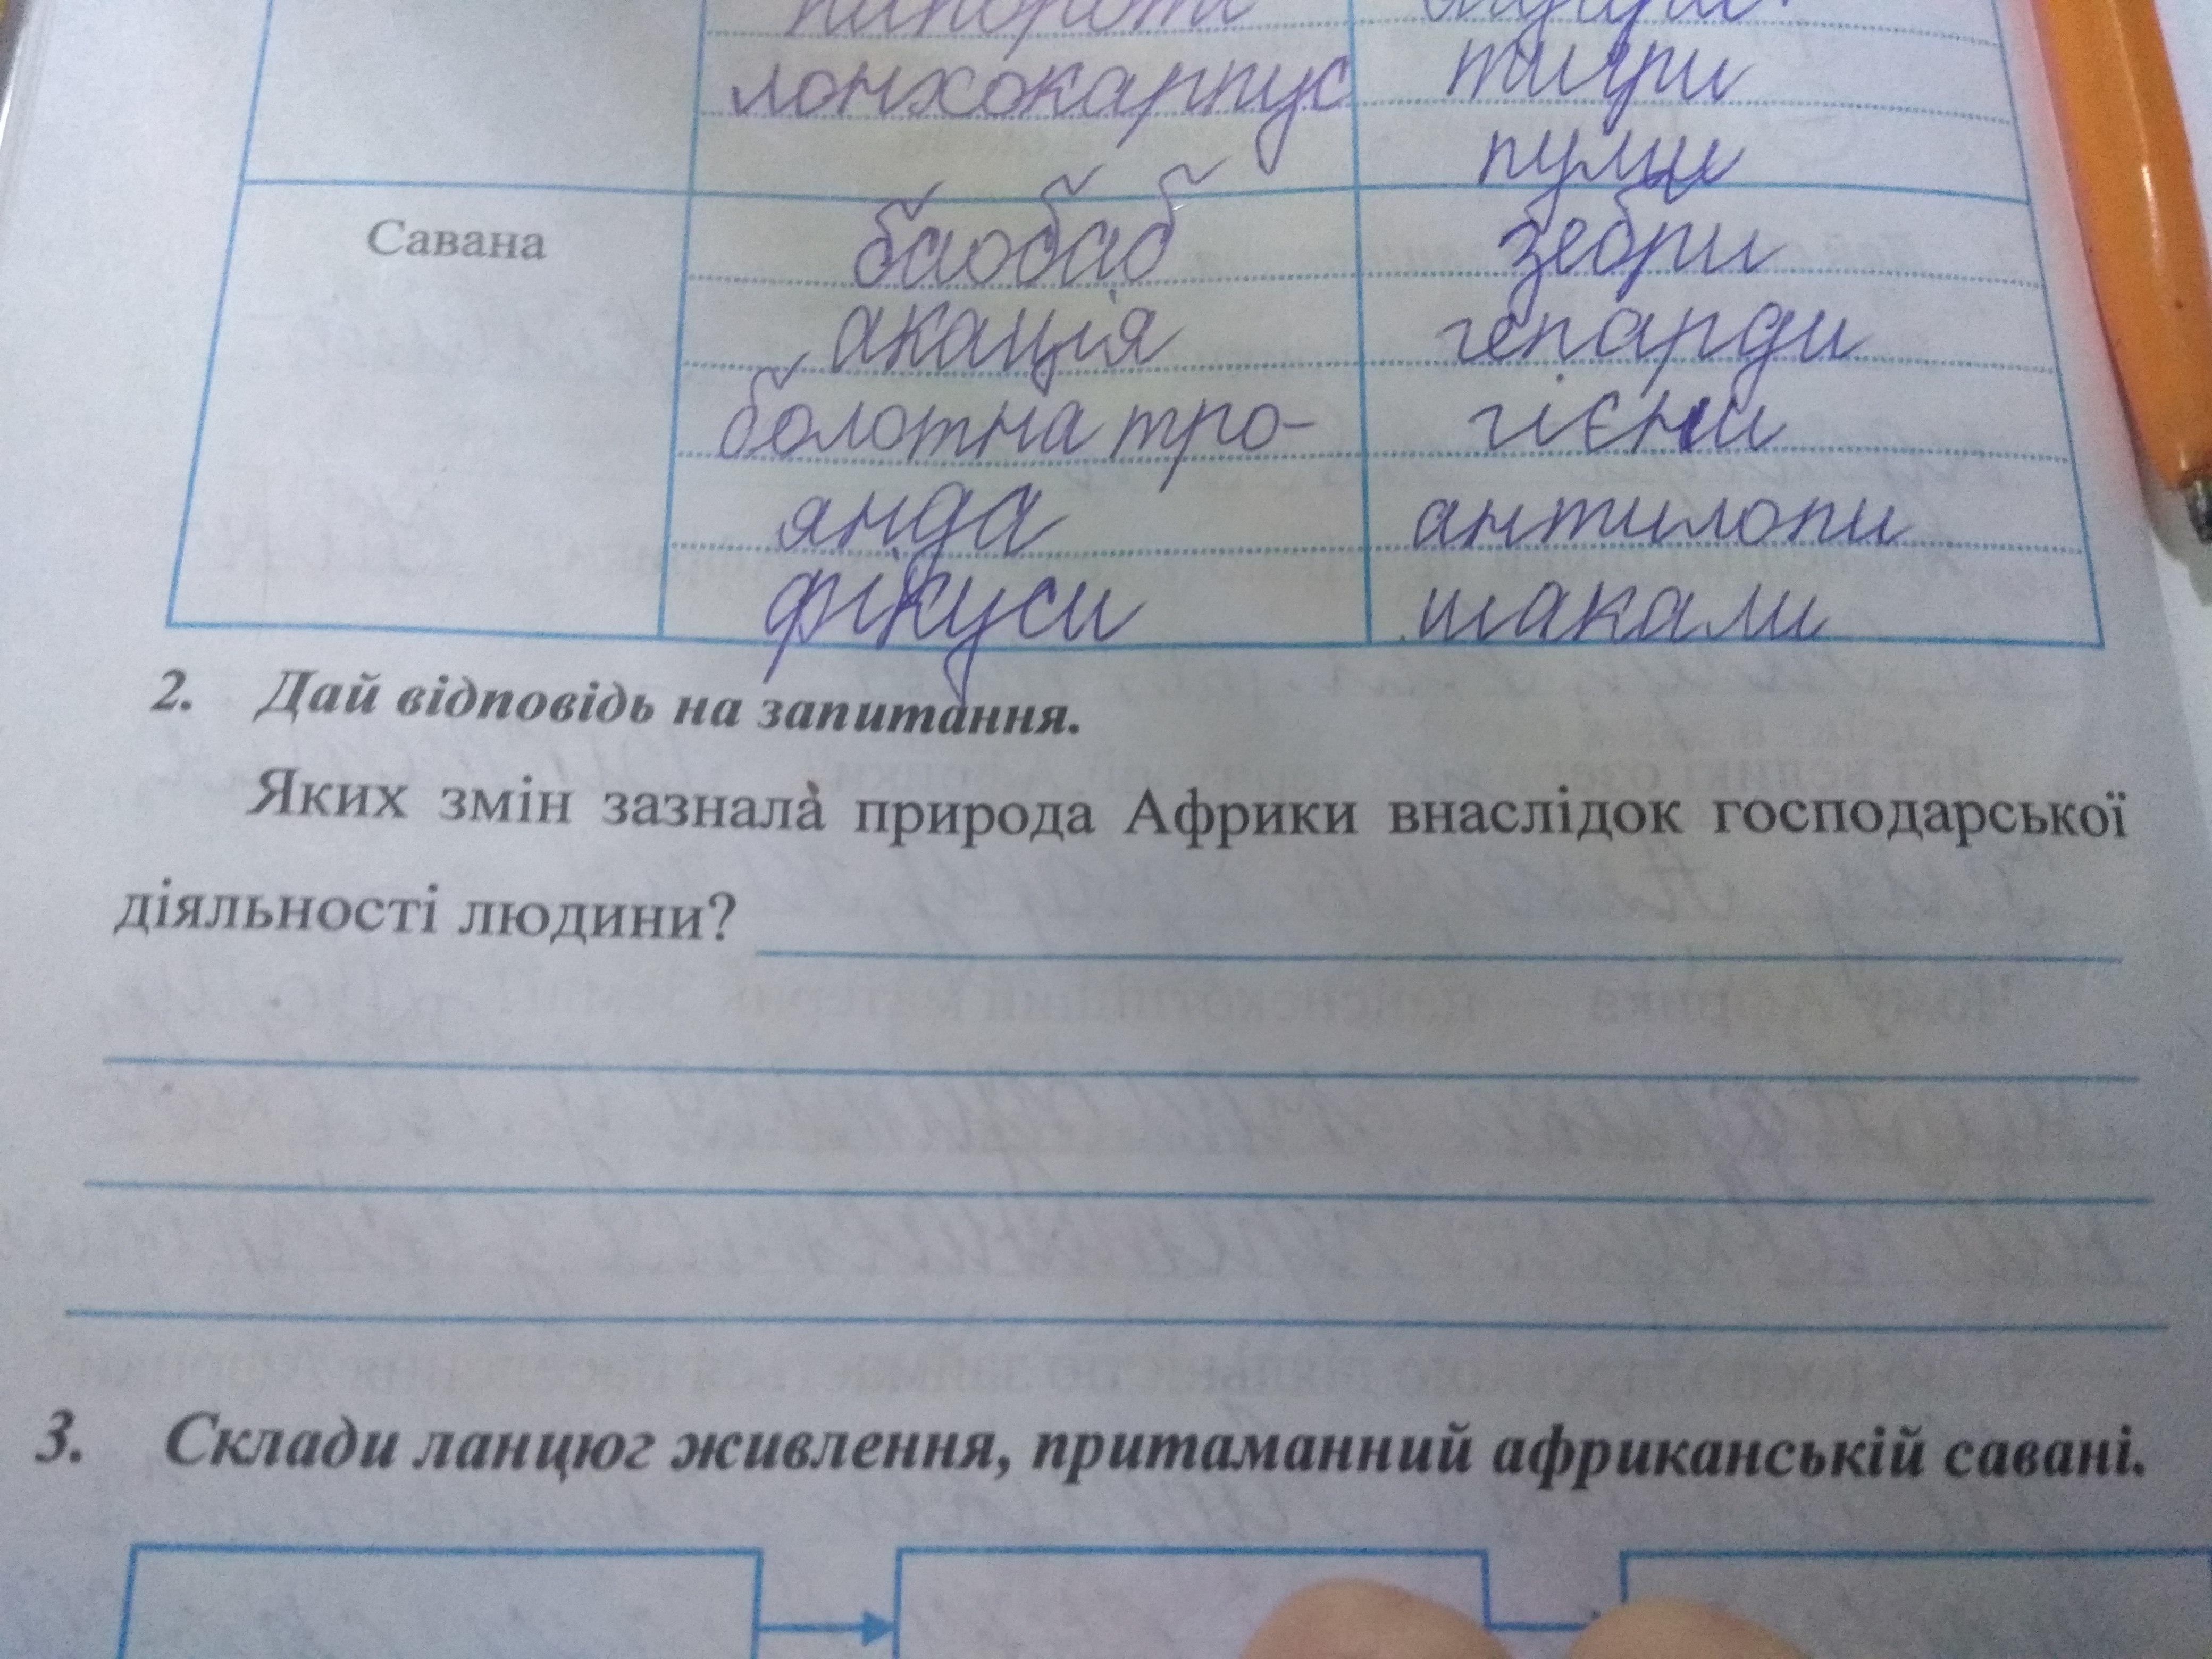 лонхокарпус тигри
пуми
Савана баобаб зебри
акація гепарди
болотна тро- гієни
янда антилопи
фікуси шакали
2. Дай відповідь на запитання.
Яких змін зазнала природа Африки внаслідок господарської
діяльності людини?
3. Склади ланцюг живлення, притаманний африканській савані.